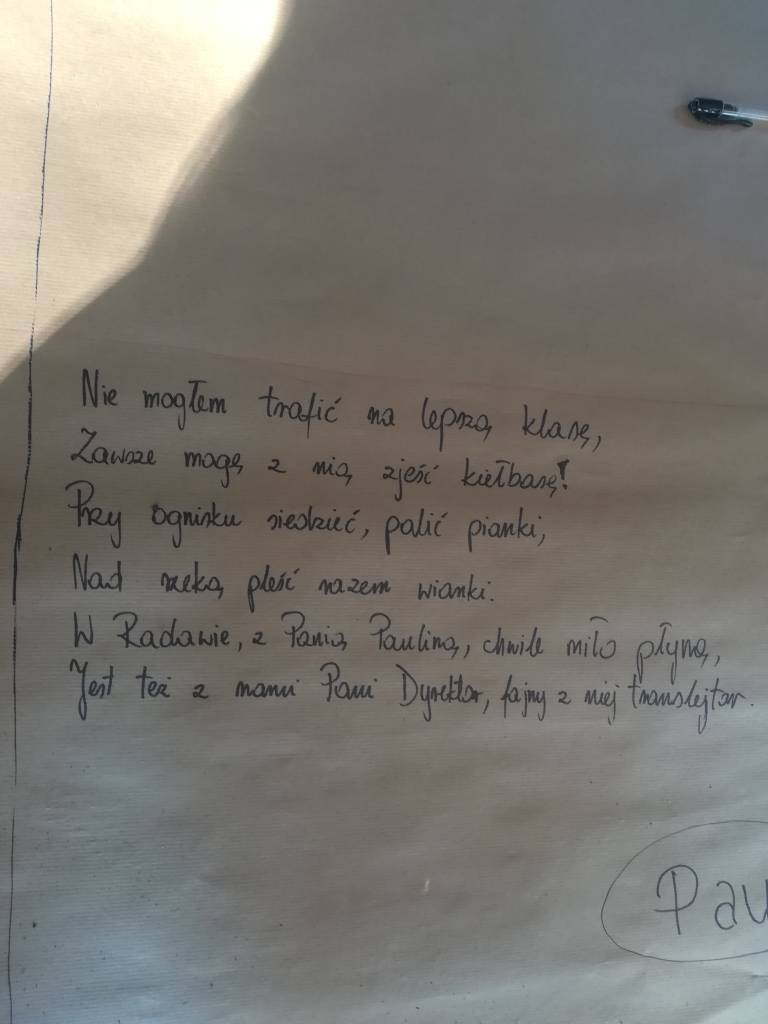 Nie mogłem trafić na lepszą klasę,
Zawsze mogę z nią zjeść kiełbasę!
Przy ognisku siedzieć, palić pianki,
Nad rzeką pleść razem wianki.
W Radawie, z Panią Pauliną, chwile miło płyną,
Jest też z nami Pani Dyrektor, fajny z niej translejtor.
Pau